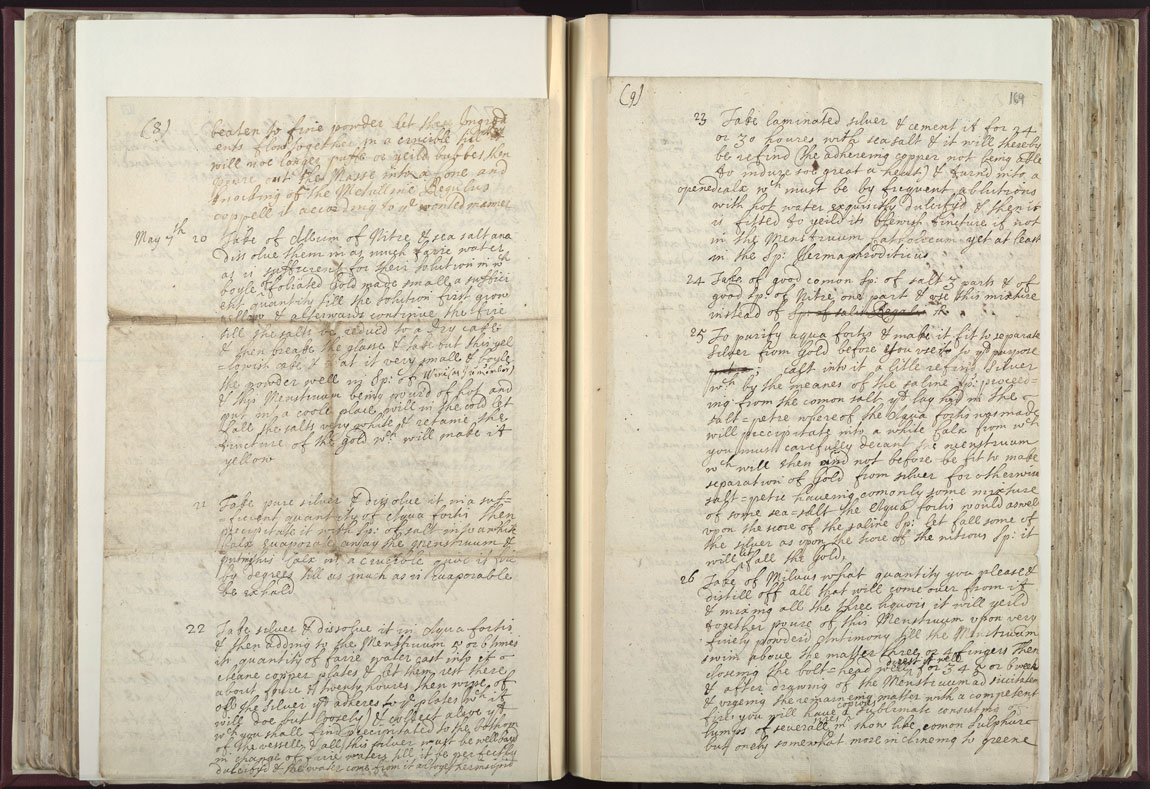 (8)
beaten to fine powder let the Ingredi
ents flow together in a crucible till
will noe longer puffe or yeild bubbes then
poure out the Masse into a Cone and
knocking of the Metalline Regulus
coppell it according to ye wonted manner
May 7th 20 Take of Album of Nitre & sea salt ana
dissolue them in as much faire water
as is sufficient for their solution in wch
boyle foliated Gold made small a suffici
ent quantity till the solution first grow
yellow & afterwards continue the fire
till the salts be reducd to a dry cake
& then breake the glasse & take out this yel
=lowish cake beat it very small & boyle
the powder well in Sp: of Wine (as I remember)
& this Menstruum being pourd of hot and
put in a coole place will in the cold let
fall the salts very white & retaine the
tincture of the Gold wch will make it
yellow
21 Take pure silver & dissolve it in a suf=
=ficient quantity of Aqua fortis then
precipitate it with Sp: of salt into a white
Calx evaporate away the Menstruum &
putting this Calx in a crucible give it fire
by degrees till as much as is evaporable
be exhald
22 Take silver & dissolve it in Aqua fortis
& then adding to the Menstruum 5 or 6 times
its quantity of faire water cast into it
cleane copper plates & let them rest there
about foure & twenty houres then wipe of
all the Silver yt adheres to ye plates wch it
will doe but loosely & collect alsoe yt
wch you shall find precipitated to the bottom
of the vessell & all this silver must be well
in change of faire waters till it be perfectly
dulcifyd & the water come from it altogether insipid
(9)
169
23 Take laminated silver & cement it for 24
or 30 houres with sea salt & it will thereby
be refind (the adhereing copper not being able
to indure soe great a heat) & turnd into a
opened calx wch must be by frequent ablutions
with hot water exquisitly dulcifyd & then it
is fitted to yeild its blewish tincture if not
in the Menstruum catholicum yet at least
in the Sp: Hermaphroditicus
24 Take of good comon Sp: of salt 3 parts & of
good sp: of Nitre one part & use this mixture
instead of Sp: of salt Regalis
25 To purify aqua fortis & make it fit to separate
Silver from Gold before you use it to yt purpose
cast into it a litle refind Silver
wch by the meanes of the saline Sp: proceed=
ing from the comon salt yt lay hid in the
salt=petre whereof the Aqua fortis was made
will precipitate into a white Calx from wch
you must carefully decant the menstruum
wch will then and not before be fit to make
separation of Gold from silver for otherwise
salt=petre haueing comonly some mixture
of some sea=salt the Aqua fortis would aswell
upon the score of the saline Sp: let fall some of
the silver as upon the score of the nitrous Sp: it
will let fall the Gold,
26 Take of Milvus what quantity you please &
distill off all that will come over from it
& mixing all the three liquors it will yeild
together poure of this Menstruum upon very
finely powderd Antimony till the Menstruum
swim above the matter three or 4 fingers Then
closing the bolt=head well digest it well for 3 4 5 or 6 weekes
& after drawing of the Menstruum ad siccitatem
& vrgeing the remaineing matter with a competent
fire you will have a copious Sublimate consisting
lumps of severall in show like comon Sulphur
but onely somewhat more inclineing to greene